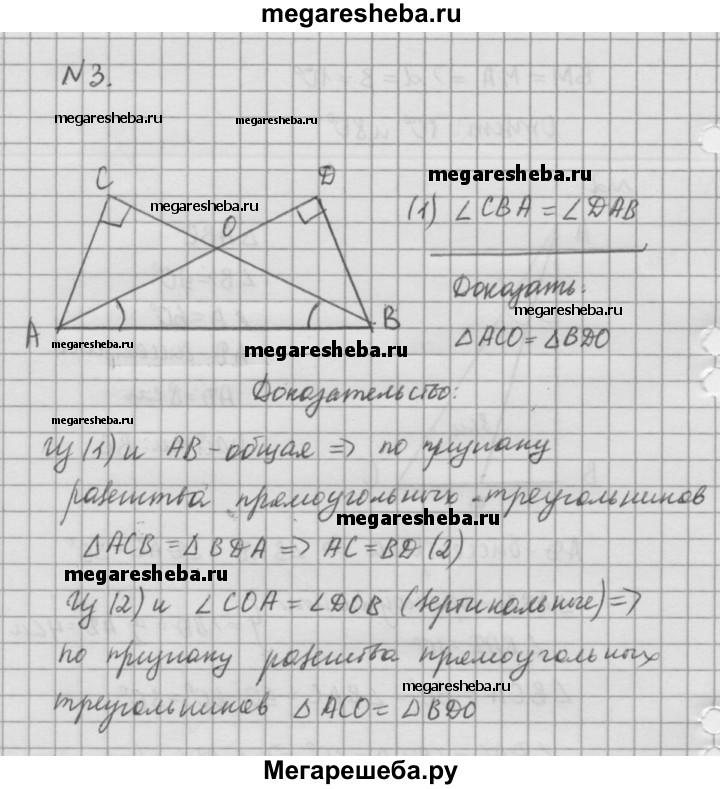 megaresheba.ru
N3.
megaresheba.ru
megaresheba.ru
C
D
megaresheba.ru
megaresheba.ru
O
(1) ∠CBA = ∠DAB
Доказать:
megaresheba.ru
A
B
△ACO = △BDO
megaresheba.ru
megaresheba.ru
Доказательство:
megaresheba.ru
Из (1) и AB - общая => по признаку
равенства прямоугольных треугольников
megaresheba.ru
△ACB = △BDA => AC = BD (2)
megaresheba.ru
Из (2) и ∠COA = ∠DOB (вертикальные) =>
по признаку равенства прямоугольных
megaresheba.ru
треугольников △ACO = △BDO
Мегарешеба.ру